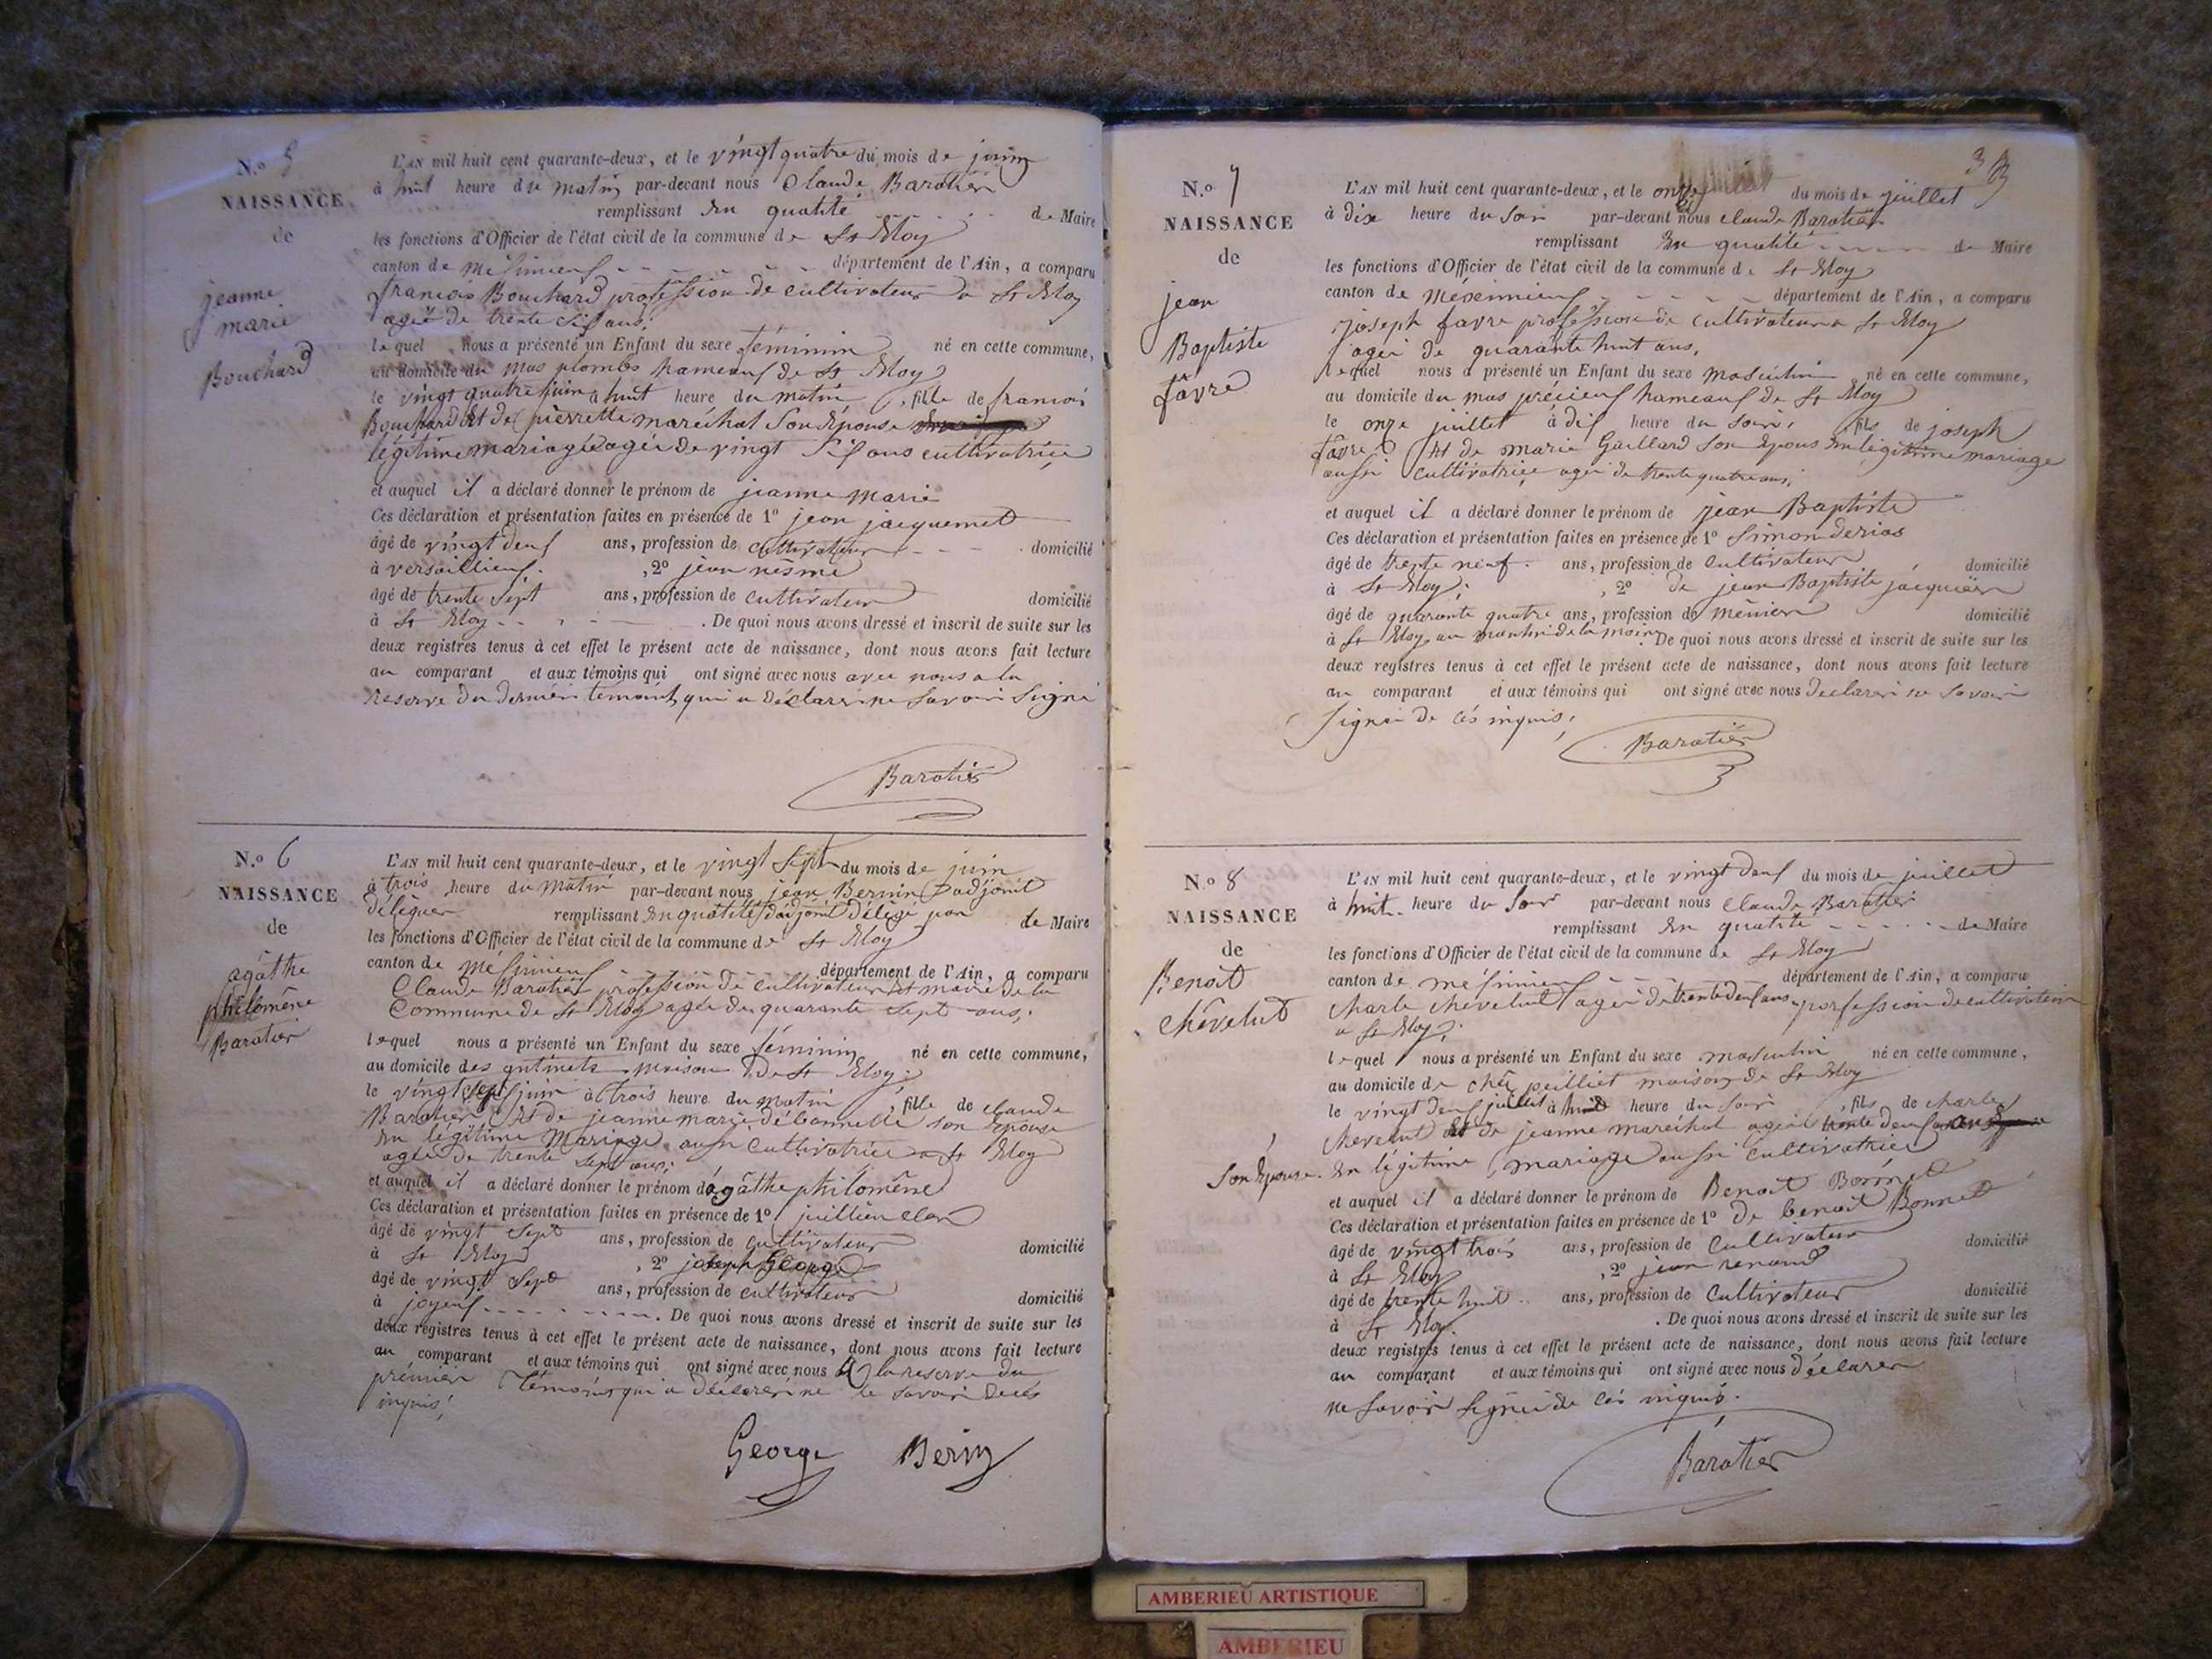 N.o 5
NAISSANCE
de
jeanne
marie
Bouchard
L'AN mil huit cent quarante-deux, et le vingt quatre du mois de juin
à huit heure du matin par-devant nous Claude Baratier
remplissant En qualité de Maire
les fonctions d'Officier de l'état civil de la commune de St Eloy
canton de département de l'Ain, a comparu
francois Bouchard profession de cultivateur a St Eloy
ageé de trente six ans;
lequel nous a présenté un Enfant du sexe féminin né en cette commune,
au domicile du mas plombs hameaux de St Eloy
le vingt quatre juin à huit heure du matin, fille de francois
Bouchard Et de pierrette maréchal Son Epouse
légitime mariage ageé de vingt six ans cultivatrice
et auquel il a déclaré donner le prénom de jeanne marie
Ces déclaration et présentation faites en présence de 1o jean jacquemet
âgé de vingt deux ans, profession de cultivateur domicilié
à versaillieux. , 2o jean nesme
âgé de trente sept ans, profession de cultivateur domicilié
à St Eloy . De quoi nous avons dressé et inscrit de suite sur les
deux registres tenus à cet effet le présent acte de naissance, dont nous avons fait lecture
au comparant et aux témoins qui ont signé avec nous avec nous a la
reserve du dernier témoint qui a déclarer ne savoir signé
Baratier
N.o 6
NAISSANCE
de
agâthe
philomêne
Baratier
L'AN mil huit cent quarante-deux, et le vingt sept du mois de juin
à trois heure du matin par-devant nous jean Bernin adjoint
déléguer remplissant En qualité d'adjoint délégé par de Maire
les fonctions d'Officier de l'état civil de la commune de St Eloy
canton de département de l'Ain, a comparu
Claude Baratier profession de cultivateur Et maire de la
Commune de St Eloy ageé de quarante sept ans;
lequel nous a présenté un Enfant du sexe féminin né en cette commune,
au domicile des maison de St Eloy;
le vingt sept juin à trois heure du matin, fille de claude
Baratier Et de jeanne marie débonnelle son Epouse
En légitime mariage aussi cultivatrice a St Eloy
ageé de trente sept ans;
et auquel il a déclaré donner le prénom d'agâthe philomêne
Ces déclaration et présentation faites en présence de 1o juillien
âgé de vingt sept ans, profession de cultivateur domicilié
à St Eloy , 2o joseph George
âgé de vingt sept ans, profession de cultivateur domicilié
à joyeux . De quoi nous avons dressé et inscrit de suite sur les
deux registres tenus à cet effet le présent acte de naissance, dont nous avons fait lecture
au comparant et aux témoins qui ont signé avec nous a la reserve du
prémier témoint qui a déclarer ne le savoir de ces
inquis;
George Bernin
3
N.o 7
NAISSANCE
de
jean
Baptiste
favre
L'AN mil huit cent quarante-deux, et le onze du mois de juillet
à dix heure du soir par-devant nous claude Baratier
remplissant En qualité de Maire
les fonctions d'Officier de l'état civil de la commune de St Eloy
canton de Méximieux département de l'Ain, a comparu
joseph favre profession de cultivateur a St Eloy
ageé de quarante huit ans,
lequel nous a présenté un Enfant du sexe masculin né en cette commune,
au domicile du mas précieux hameaux de St Eloy
le onze juillet à dix heure du soir, fils de joseph
favre Et de marie Gaillard son Epouse En légitime mariage
aussi cultivatrice ageé de trente quatre ans;
et auquel il a déclaré donner le prénom de jean Baptiste
Ces déclaration et présentation faites en présence de 1o Simon derias
âgé de trente neuf ans, profession de cultivateur domicilié
à St Eloy; , 2o de jean Baptiste jacquier
âgé de quarante quatre ans, profession de Ménier domicilié
à St Eloy au De quoi nous avons dressé et inscrit de suite sur les
deux registres tenus à cet effet le présent acte de naissance, dont nous avons fait lecture
au comparant et aux témoins qui ont signé avec nous declarer ne savoir
signer de cés inquis,
Baratier
N.o 8
NAISSANCE
de
Benoit
chévelut
L'AN mil huit cent quarante-deux, et le vingt deux du mois de juillet
à huit heure du soir par-devant nous claude Baratier
remplissant En qualité de Maire
les fonctions d'Officier de l'état civil de la commune de St Eloy
canton de département de l'Ain, a comparu
charle chevelut ageé de trente deux ans porfession de cultivateur
a St Eloy;
lequel nous a présenté un Enfant du sexe masculin né en cette commune,
au domicile de chêz peilliet maison de St Eloy
le vingt deux juillet à huit heure du soir, fils de charle
chevelut Et de jeanne maréchal ageé trente deux ans
Son Epouse. En légitime mariage aussi cultivatrice
et auquel il a déclaré donner le prénom de Benoit Bonnet
Ces déclaration et présentation faites en présence de 1o de benoit Bonnet
âgé de vingt trois ans, profession de cultivateur domicilié
à St Eloy , 2o jean renaud
âgé de trente huit ans, profession de cultivateur domicilié
à St Eloy. . De quoi nous avons dressé et inscrit de suite sur les
deux registres tenus à cet effet le présent acte de naissance, dont nous avons fait lecture
au comparant et aux témoins qui ont signé avec nous déclarer
ne savoir signer de cés inquis.
Baratier
AMBERIEU ARTISTIQUE
AMBERIEU